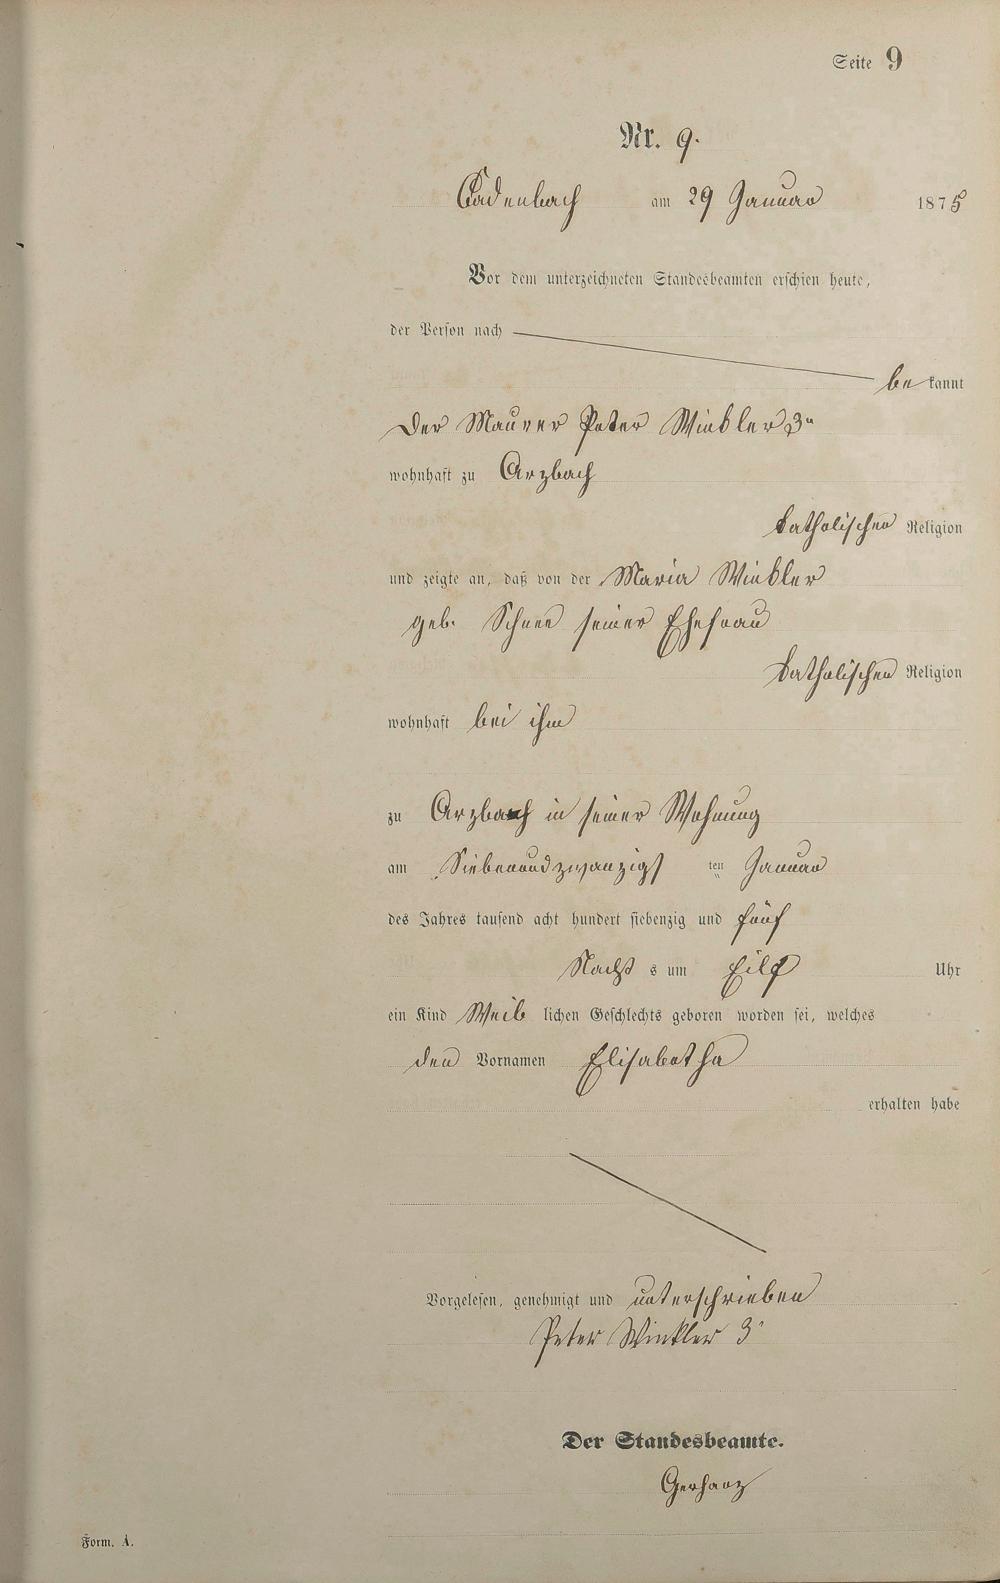 Seite 9
Nr. 9.
Cadenbach am 29 Januar 1875
Vor dem unterzeichneten Standesbeamten erschien heute,
der Person nach
be kannt
Der Maurer Peter Winkler 3r
wohnhaft zu Arzbach
katholischer Religion
und zeigte an, daß von der Maria Winkler
geb. Schnee seiner Ehefrau
katholischer Religion
wohnhaft bei ihm
zu Arzbach in seiner Wohnung
am Siebenundzwanzigs ten Januar
des Jahres tausend acht hundert siebenzig und fünf
Nacht s um Eilf Uhr
ein Kind Weib lichen Geschlechts geboren worden sei, welches
den Vornamen Elisabetha
erhalten habe
Vorgelesen, genehmigt und unterschrieben
Peter Winkler 3r
Der Standesbeamte.
Gerharz
Form. A.